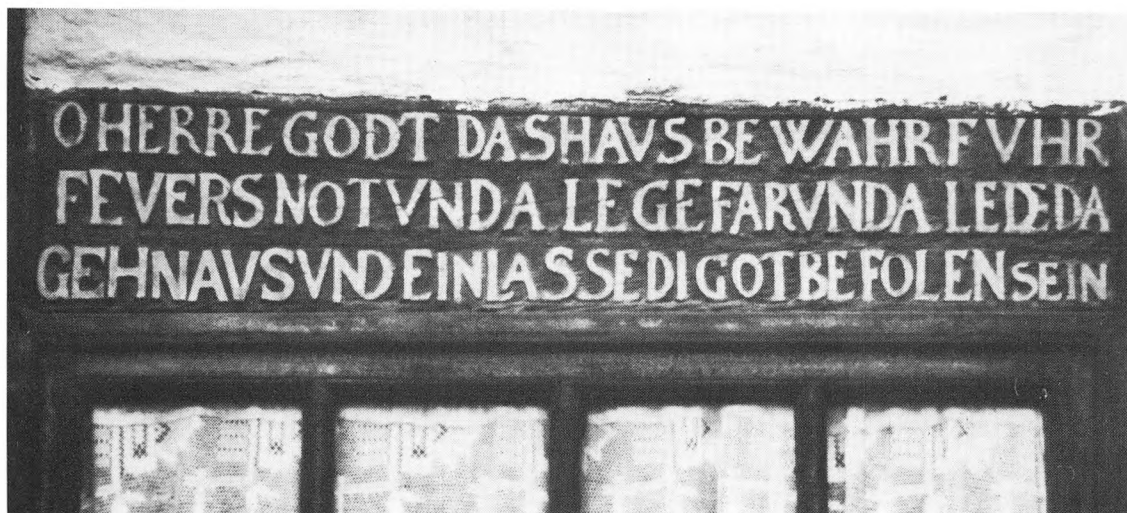 O HERRE GODT DAS HAVS BE WAHR FVHR
FEVERS NOT VND A LE GE FAR VND A LE DE DA
GEHN AVS VND EIN LAS SE DI GOT BE FOLEN SEIN